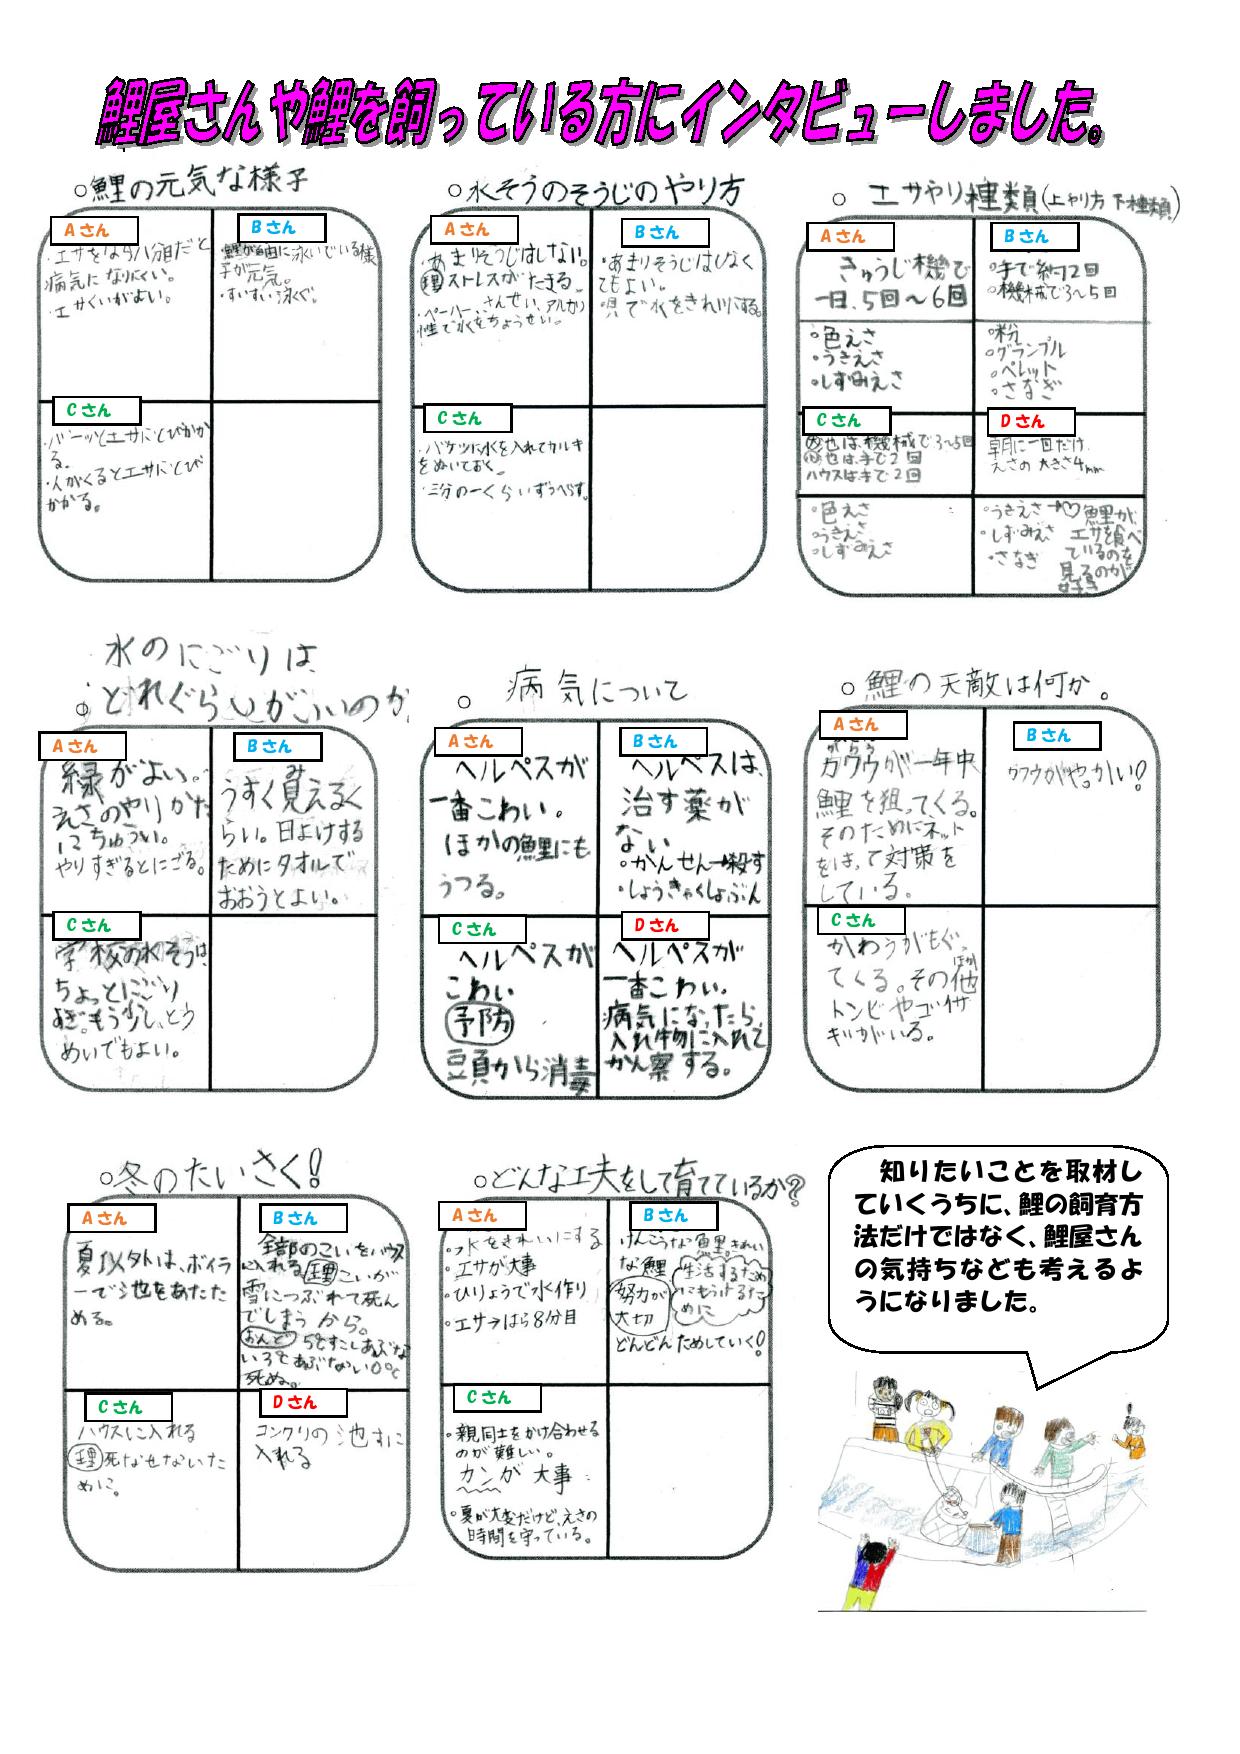 鯉屋さんや鯉を飼っている方にインタビューしました。
○鯉の元気な様子
Aさん
・エサをなら八分頭だと
病気になりにくい。
・エサくいがよい。
Bさん
・鯉が自由に泳いでいる様
子が元気。
・すいすい泳ぐ。
Cさん
・バーッとエサにとびかか
る。
・人がくるとエサにとび
かかる。
○水そうのそうじのやり方
Aさん
・あまりそうじはしない。
理ストレスがたまる。
性で水をちょうせい。
Bさん
・あまりそうじはしなく
てもよい。
で水をきれいにする。
Cさん
・バケツに水を入れてカルキ
をぬいておく。
・三分の一くらいずつへらす。
○エサやり種類(上やり方 下種類)
Aさん
きゅうじ機で
一日、5回～6回
・色えさ
・うきえさ
・しずみえさ
Bさん
・手で約2回
・機械で3～5回
・粉
・グランプル
・ペレット
・さなぎ
Cさん
池は、機械で3～5回
池は手で2回
ハウスは手で2回
・色えさ
・うきえさ
・しずみえさ
Dさん
朝に一回だけ
えさの大きさ4mm
・うきえさ→♡鯉が
・しずみえさ エサを食べ
・さなぎ ているのを
見るのが
好き
水のにごりは
○どれぐらいがいいのか
Aさん
緑がよい。
えさのやりかた
にちゅうい。
やりすぎるとにごる。
Bさん
うすく見えるく
らい。日よけする
ためにタオルで
おおうとよい。
Cさん
学校の水そうは、
ちょっとにごり
すぎ。もう少し、とう
めいでもよい。
○病気について
Aさん
ヘルペスが
一番こわい。
ほかの鯉にも
うつる。
Bさん
ヘルペスは、
治す薬が
ない
・かんせん→殺す
・しょうきゃくしょぶん
Cさん
ヘルペスが
こわい
予防
豆頁から消毒
Dさん
ヘルペスが
一番こわい。
病気になったら、
入れ物に入れて
かん察する。
○鯉の天敵は何か。
Aさん
カワウが一年中
鯉を狙ってくる。
そのためにネット
をはって対策を
している。
Bさん
カワウがやっかい!
Cさん
かわうがもぐっ
てくる。その他
トンビやゴイサ
ギがいる。
○冬のたいさく!
Aさん
夏以外は、ボイラ
ーで池をあたた
める。
Bさん
全部のこいをハウス
に入れる理こいが
雪につぶれて死ん
でしまうから。
おんど 5℃すこしあぶな
い3℃あぶない0℃
死ぬ。
Cさん
ハウスに入れる
理死なせないた
めに。
Dさん
コンクリの池すに
入れる
○どんな工夫をして育てているか?
Aさん
・水をきれいにする
・エサが大事
・ひりょうで水作り
・エサ→はら8分目
Bさん
けんこうな魚里。きれい
な鯉
生活するため
にもうけるた
めに
努力が
大切
どんどんためしていく!
Cさん
・親同士をかけ合わせる
のが難しい。
カンが大事
・夏が大変だけど、えさの
時間を守っている。
知りたいことを取材し
ていくうちに、鯉の飼育方
法だけではなく、鯉屋さん
の気持ちなども考えるよ
うになりました。